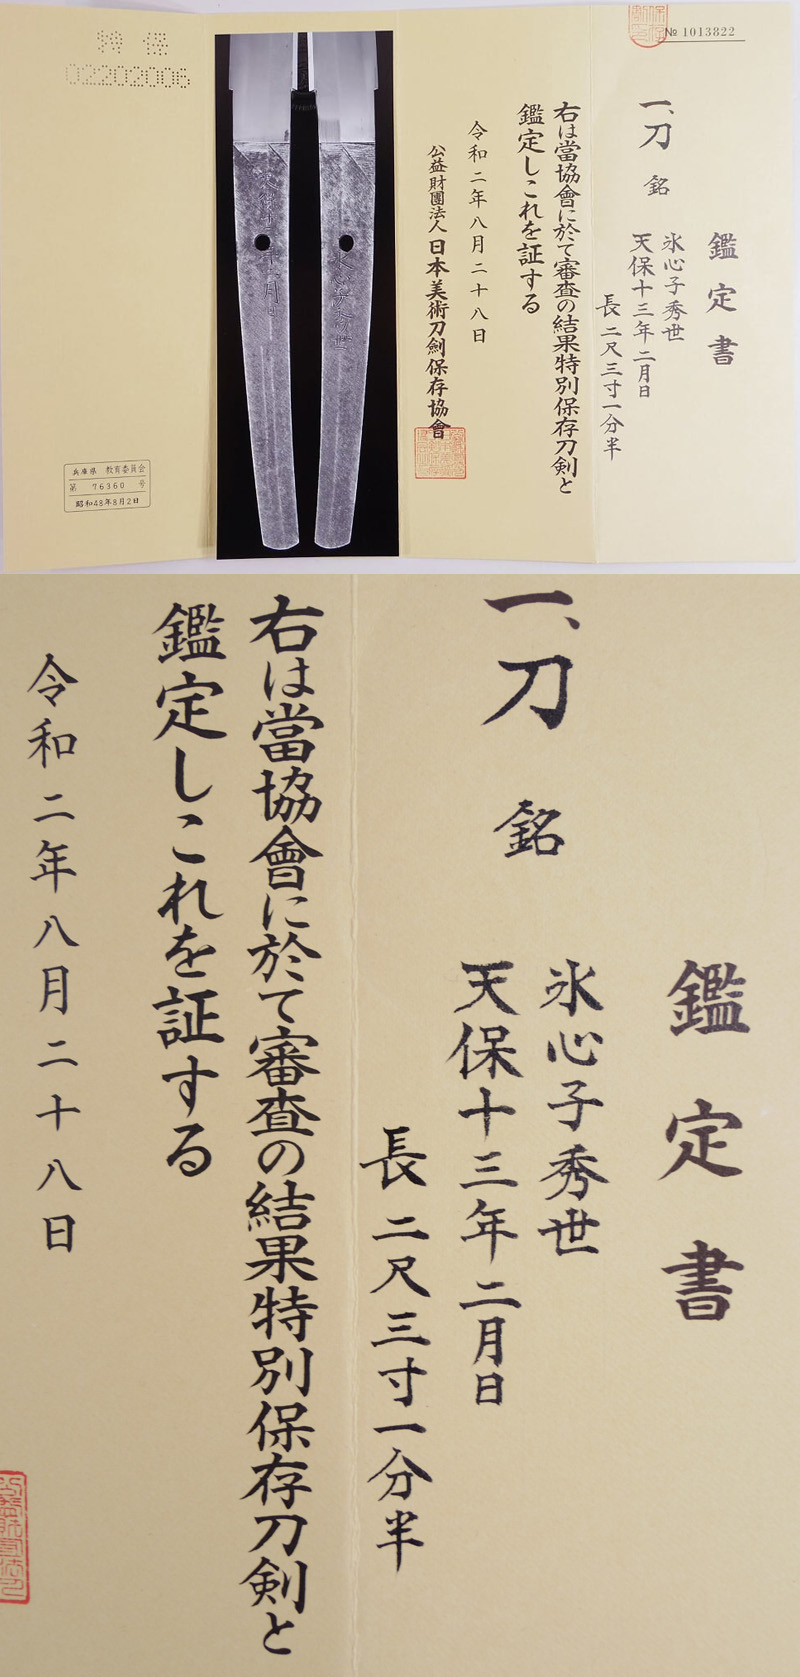 № 1013822
鑑定書
一、刀 銘
氷心子秀世
天保十三年二月日
長 二尺三寸一分半
右は當協會に於て審査の結果特別保存刀剣と
鑑定しこれを証する
令和二年八月二十八日
公益財團法人日本美術刀劍保存協會
特保
02202006
兵庫県 教育委員会
第 76360 号
昭和48年8月2日
氷心子秀世
鑑定書
一、刀 銘
氷心子秀世
天保十三年二月日
長 二尺三寸一分半
右は當協會に於て審査の結果特別保存刀剣と
鑑定しこれを証する
令和二年八月二十八日